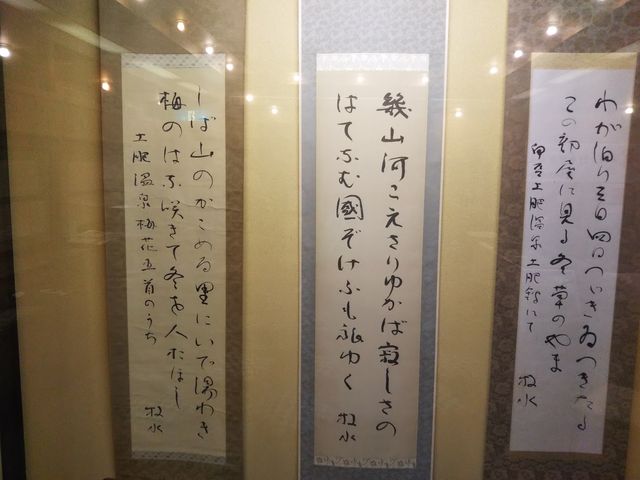 わが泊り三日四日つゞきゐつきたる
この部屋に見る冬草のやま
伊豆土肥温泉土肥館にて
牧水
幾山河こえさりゆかば寂しさの
はてなむ國ぞけふも旅ゆく
牧水
しば山のかこめる里にいで湯わき
梅のはな咲きて冬を人おほし
土肥温泉梅花五首のうち
牧水